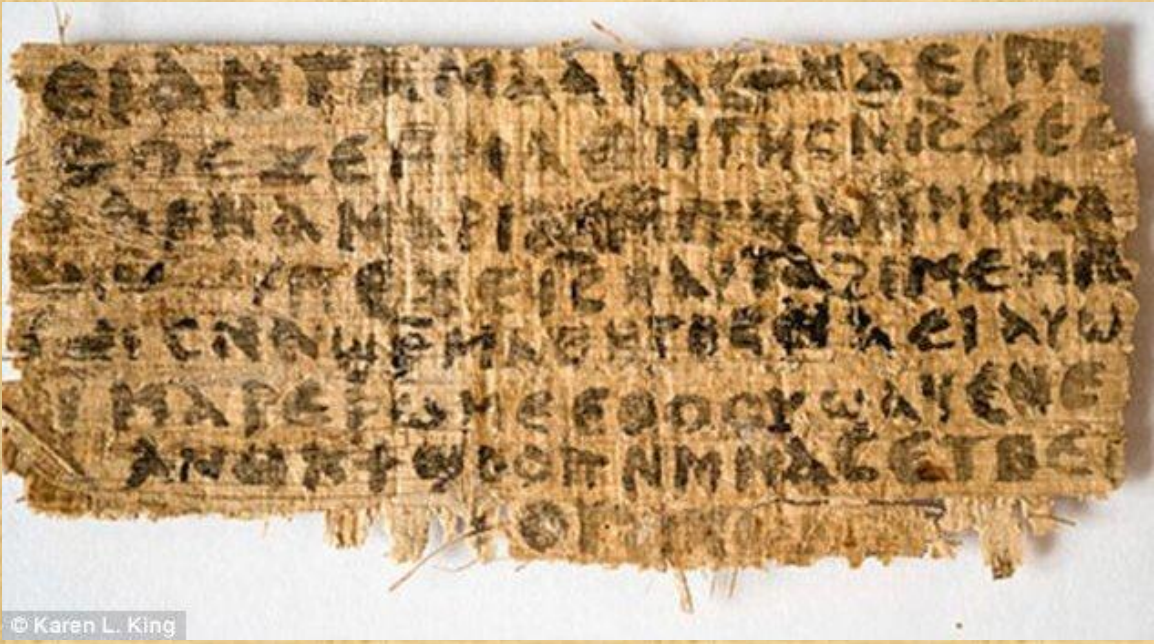 ⲉⲓ ⲁⲛ ⲧⲁⲙⲁⲁⲩ ⲁⲥϯ ⲛⲁⲉⲓ
ⲡⲉϫⲉ ⲙⲙⲁⲑⲏⲧⲏⲥ ⲛⲓ̅ⲥ̅ ϫⲉ
ⲁⲣⲛⲁ ⲙⲁⲣⲓⲁⲙ
ⲡⲉϫⲉ ⲓ̅ⲥ̅ ⲛⲁⲩ ⲧⲁϩⲓⲙⲉ ⲙⲛ
ⲥⲛⲁϣⲣ̅ⲙⲁⲑⲏⲧⲏⲥ ⲛⲁⲉⲓ ⲁⲩⲱ
ⲙⲁⲣⲉⲣⲱⲙⲉ ⲉⲑⲟⲟⲩ ϣⲁϥⲉ ⲛⲉ
ⲁⲛⲟⲕ ϯϣⲟⲟⲡ ⲛⲙⲙⲁⲥ ⲉⲧⲃⲉ
© Karen L. King